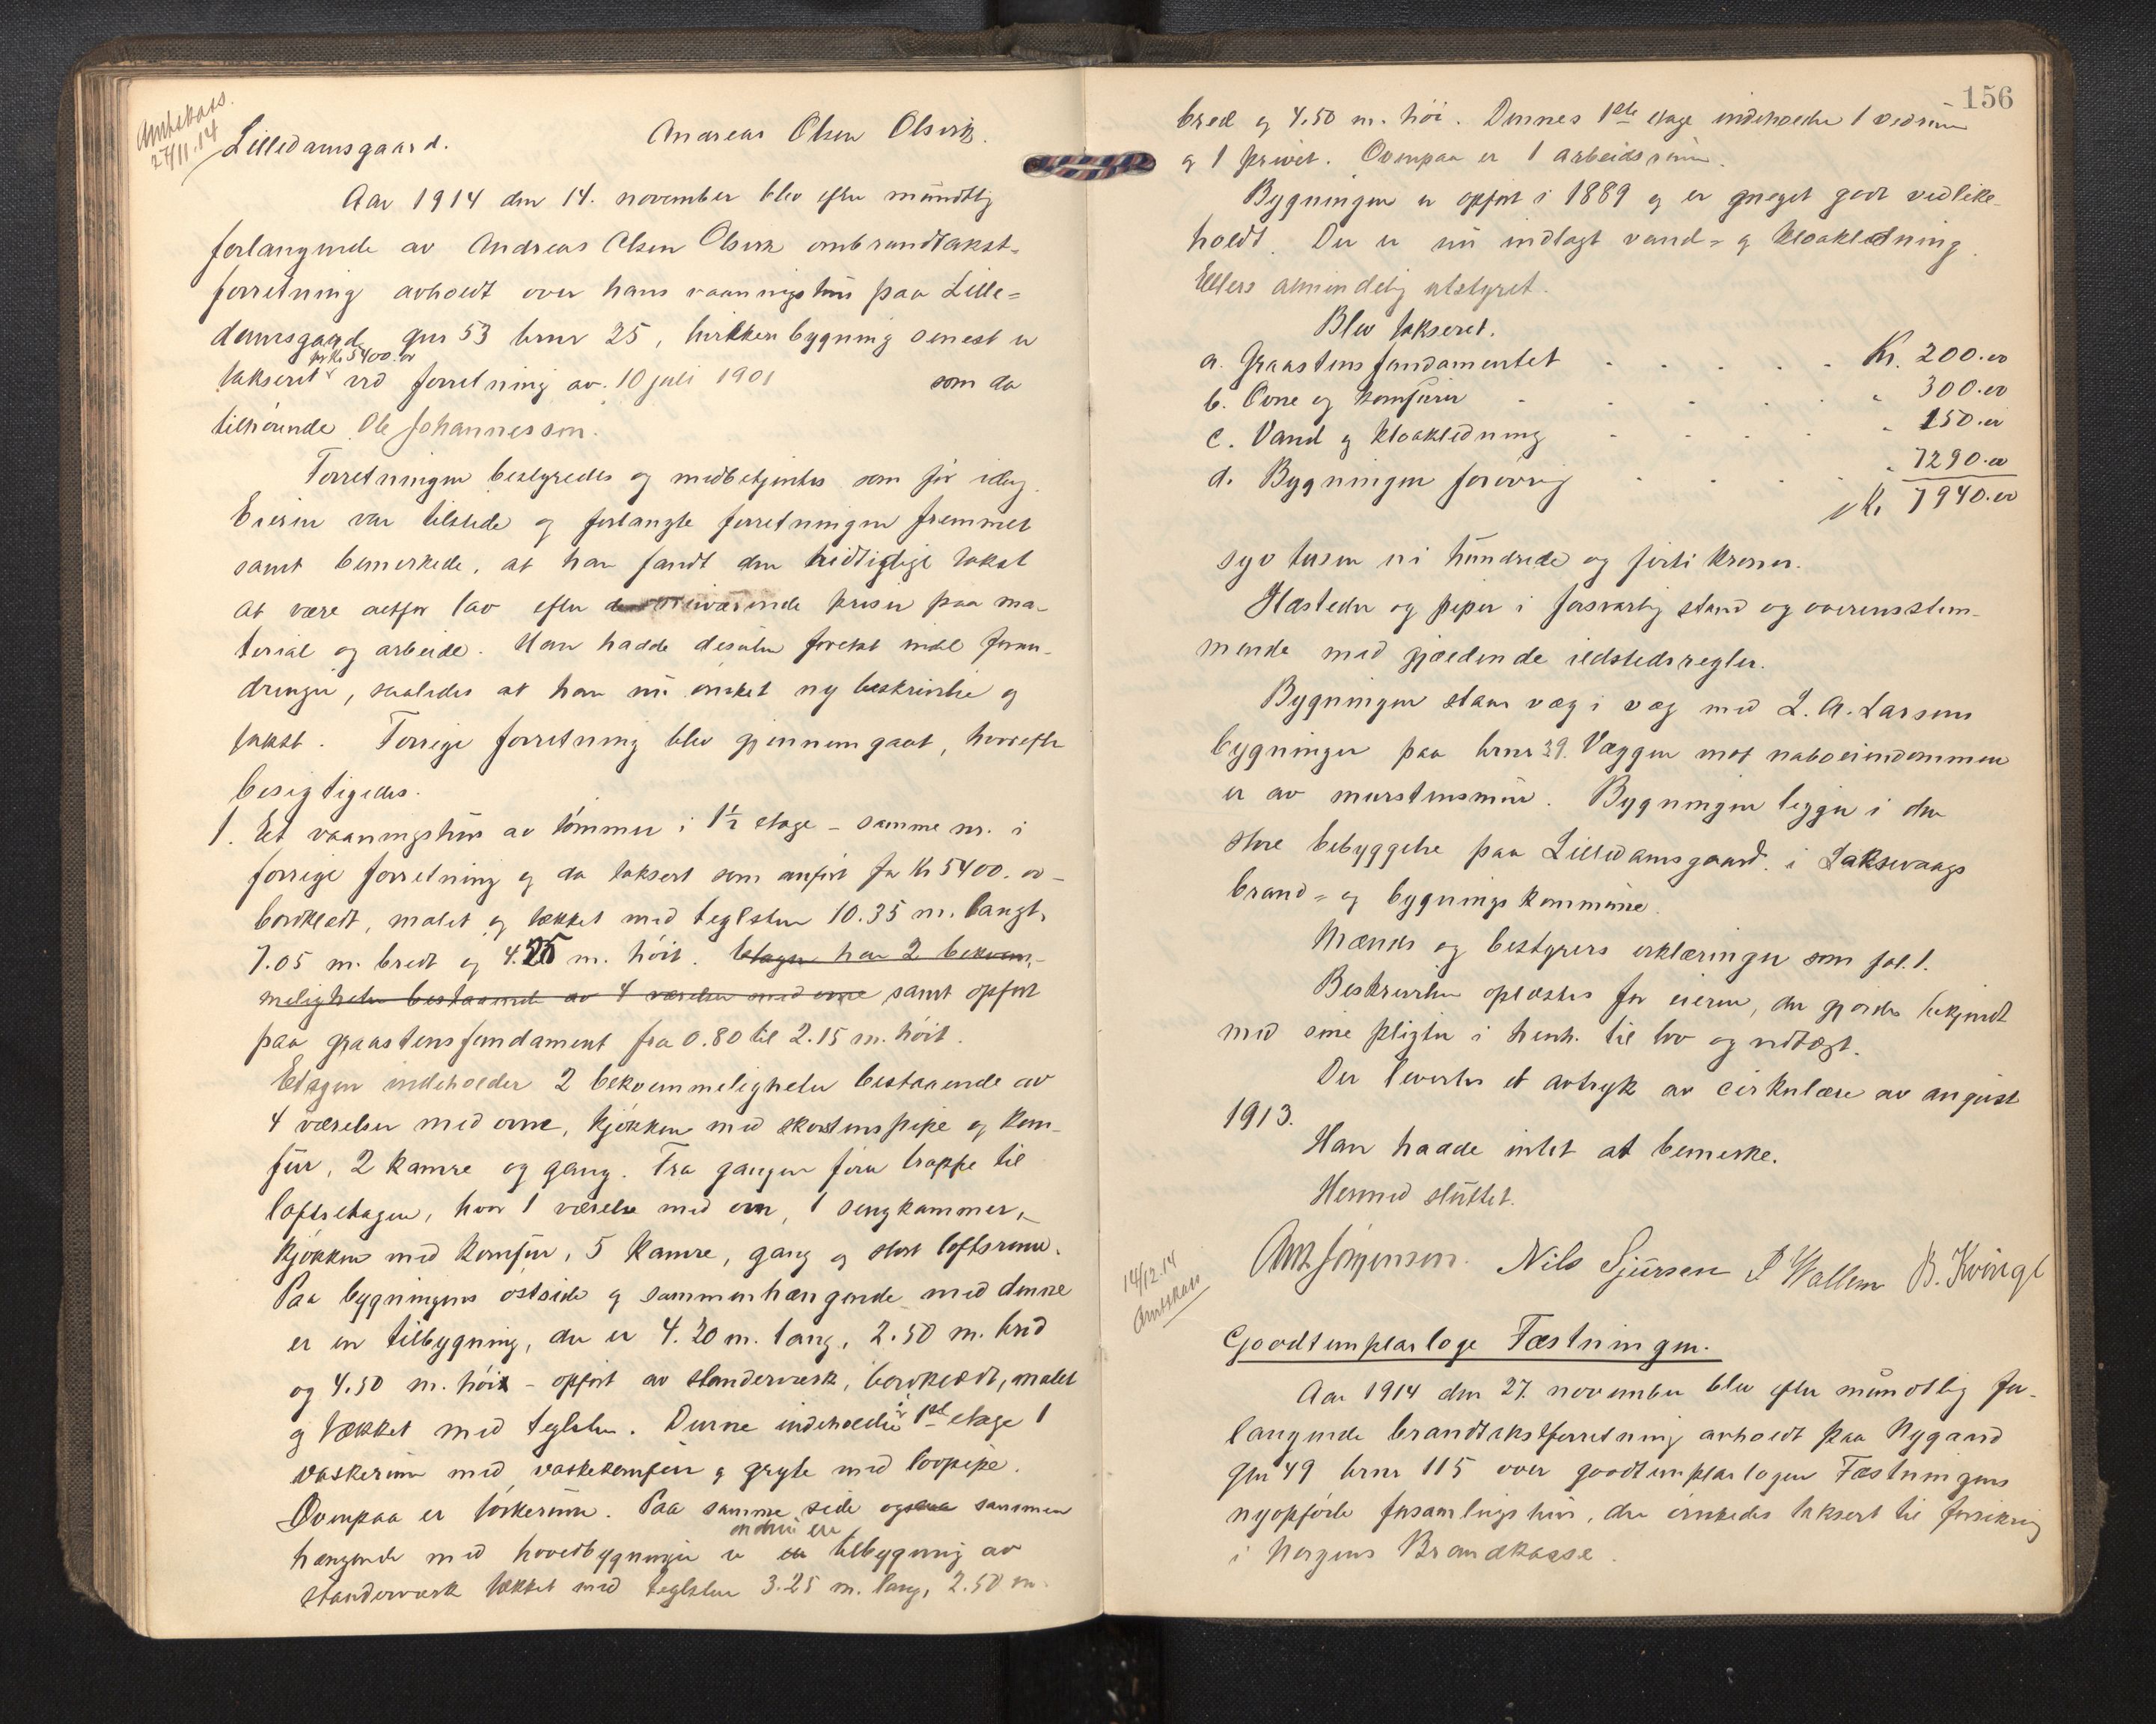 Amtskass.
27/11.14
Lilledamsgaard. Andreas Olsen Olsvik.
Aar 1914 den 14. november blev efter mündtlig
forlangende av Andreas Olsen Olsvik ombrandtakst=
forretning avholdt over hans vaaningshüs paa Lille=
damsgaard gnr 53 brnr 25, hvilken bygning senest er
for Kr 5400.00
taksert ved forretning av. 10 juli 1901 som da
tilhørende Ole Johannesson.
Forretningen bestyredes og medbetjentes som før idag.
Eieren var tilstede og forlangte forretningen fremmet
samt bemerkede, at han fandt den hidtidige takst
at være altfor lav efter nuværende priser paa ma-
terial og arbeide. Han hadde desuten foretat endel foran-
dringer, saaledes at han nü ønsket ny beskrivelse og
takst. Forrige forretning blev gjennemgaat, hvorefter
besigtigedes.
1. Et vaaningshüs av tømmer i 1½ etage - samme nr. i
forrige forretning og da taksert som anført for Kr 5400.00 -
bordklædt, malet og tækket med teglsten 10.35 m. langt,
7.05 m. bredt og 4.25 m. høit. Etagen har 2 bekvem-
meligheter bestaaende av 4 værelser med ovne samt opført
paa graastensfundament fra 0.80 til 2.15 m. høit.
Etagen indeholder 2 bekvemmeligheter bestaaende av
4 værelser med ovne, kjøkken med skorstenspipe og kom-
für, 2 kamre og gang. Fra gangen fører trappe til
loftsetagen, hvor 1 værelse med ovn, 1 sengkammer,
kjøkken med komfür, 5 kamre, gang og stort loftsrum.
Paa bygningens østside og sammenhængende med denne
er en tilbygning, der er 4.20 m. lang, 2.50 m. bred
og 4.50 m. høi - opført av standerværk, bordklædt, malet
og tækket med teglsten. Denne indeholder i 1ste etage 1
vaskerüm med vaskekomfür og gryte med lovpipe.
Ovenpaa er tørkerüm. Paa samme side ogsaa sammen
hængende med hovedbygningen er endnü en tilbygning av
standerværk tækket med teglsten 3.25 m. lang, 2.50 m.
156
bred og 4.50 m. høi. Dennes 1ste etage indeholder 1 vedrüm
og 1 privet. Ovenpaa er 1 arbeidsrüm.
Bygningen er opført i 1889 og er meget godt vedlike-
holdt. Der er nü indlagt vand= og kloakledning.
Ellers almindelig utstyret.
Blev taksert.
a. Graastensfundamentet . . . . . Kr. 200.00
b. Ovne og komfürer . . . . . " 300.00
c. Vand og kloakledning . . . . " 150.00
d. Bygningen forøvrig . . . . " 7290.00
Kr. 7940.00
syv tusen ni hündrede og førti kroner.
Ildsteder og piper i forsvarlig stand og overensstem-
mende med gjældende ildstedsregler.
Bygningen staar væg i væg med L. A. Larsens
bygninger paa brnr 39. Væggen mot naboeiendommen
er av murstensmür. Bygningen ligger i den
store bebyggelse paa Lilledamsgaard i Laksevaags
brand= og bygningskommüne.
Mænds og bestyrers erklæringer som fol. 1.
Beskrivelsen oplæstes for eieren, der gjordes bekjendt
med sine pligter i henh. til lov og vedtægt.
Der levertes et avtryk av cirkulære av august
1913.
Han hadde intet at bemerke.
Hermed slüttet.
Ant Jørgensen. Nils Sjürsen P Wallem B. Kvinge
14/12.14
Amtskass
Goodtemplarloge Fæstningen.
Aar 1914 den 27. november blev efter mündtlig for-
langende brandtakstforretning avholdt paa Nygaard
gnr 49 brnr 115 over goodtemplarlogen Fæstningens
nyopførte forsamlingshüs, der ønskedes taksert til forsikring
i Norges Brandkasse.